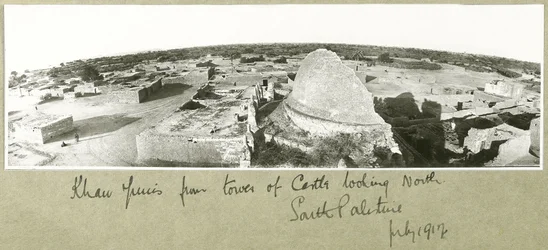 Khan Yunis from tower of Castle looking North
South Palestine
July 1917